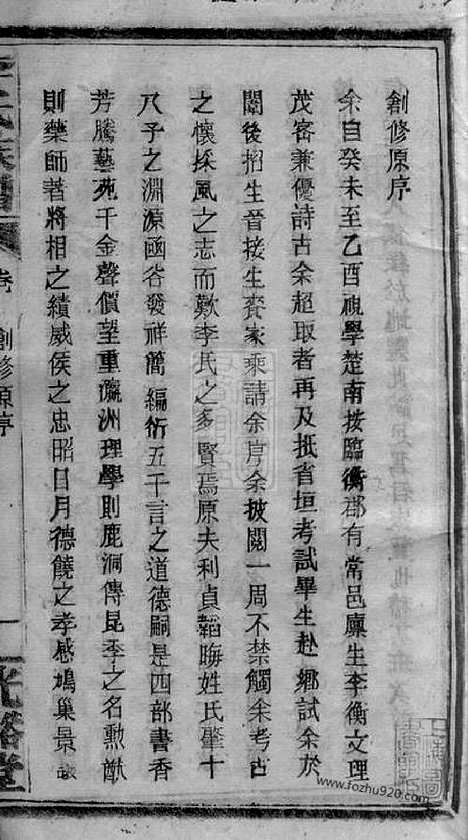 創修原序
余自癸未至乙酉視學楚南按臨衡郡有常邑廩生李衡文理
茂密兼優詩古余超取者再及抵省垣考試畢生赴鄉試余於
闈後招生晉接生賫家乘請余序余披閱一周不禁觸余考古
之懷採風之志而歎李氏之多賢焉原夫利貞韜晦姓氏肇十
八子之淵源函谷發祥簡編衍五千言之道德嗣是四部書香
芳騰藝苑千金聲價望重瀛洲理學則鹿洞傳昆季之名勲猷
則藥師著將相之績威侯之忠昭日月德饒之孝感鳩巢景
氏族譜
卷
創修原序
一
堂
www.fozhu920.com